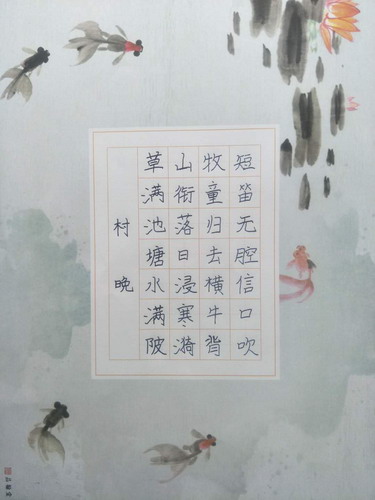 村晚
草满池塘水满陂
山衔落日浸寒漪
牧童归去横牛背
短笛无腔信口吹